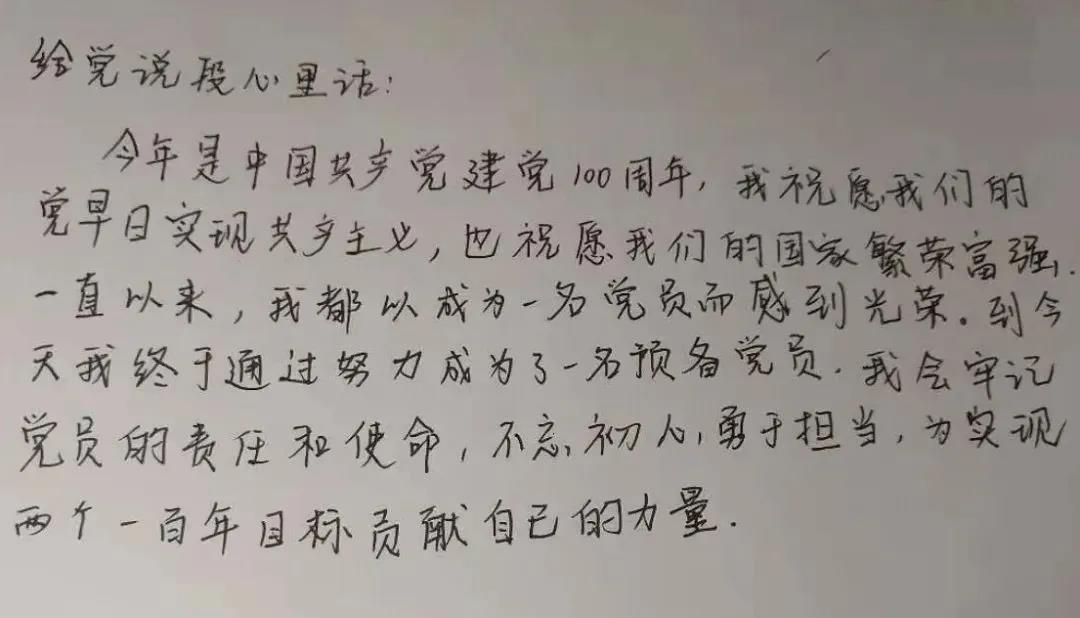 给党说段心里话:
今年是中国共产党建党100周年，我祝愿我们的
党早日实现共产主义，也祝愿我们的国家繁荣富强.
一直以来，我都以成为一名党员而感到光荣。到今
天我终于通过努力成为了一名预备党员.我会牢记
党员的责任和使命，不忘初心，勇于担当，为实现
两个一百年目标贡献自己的力量.